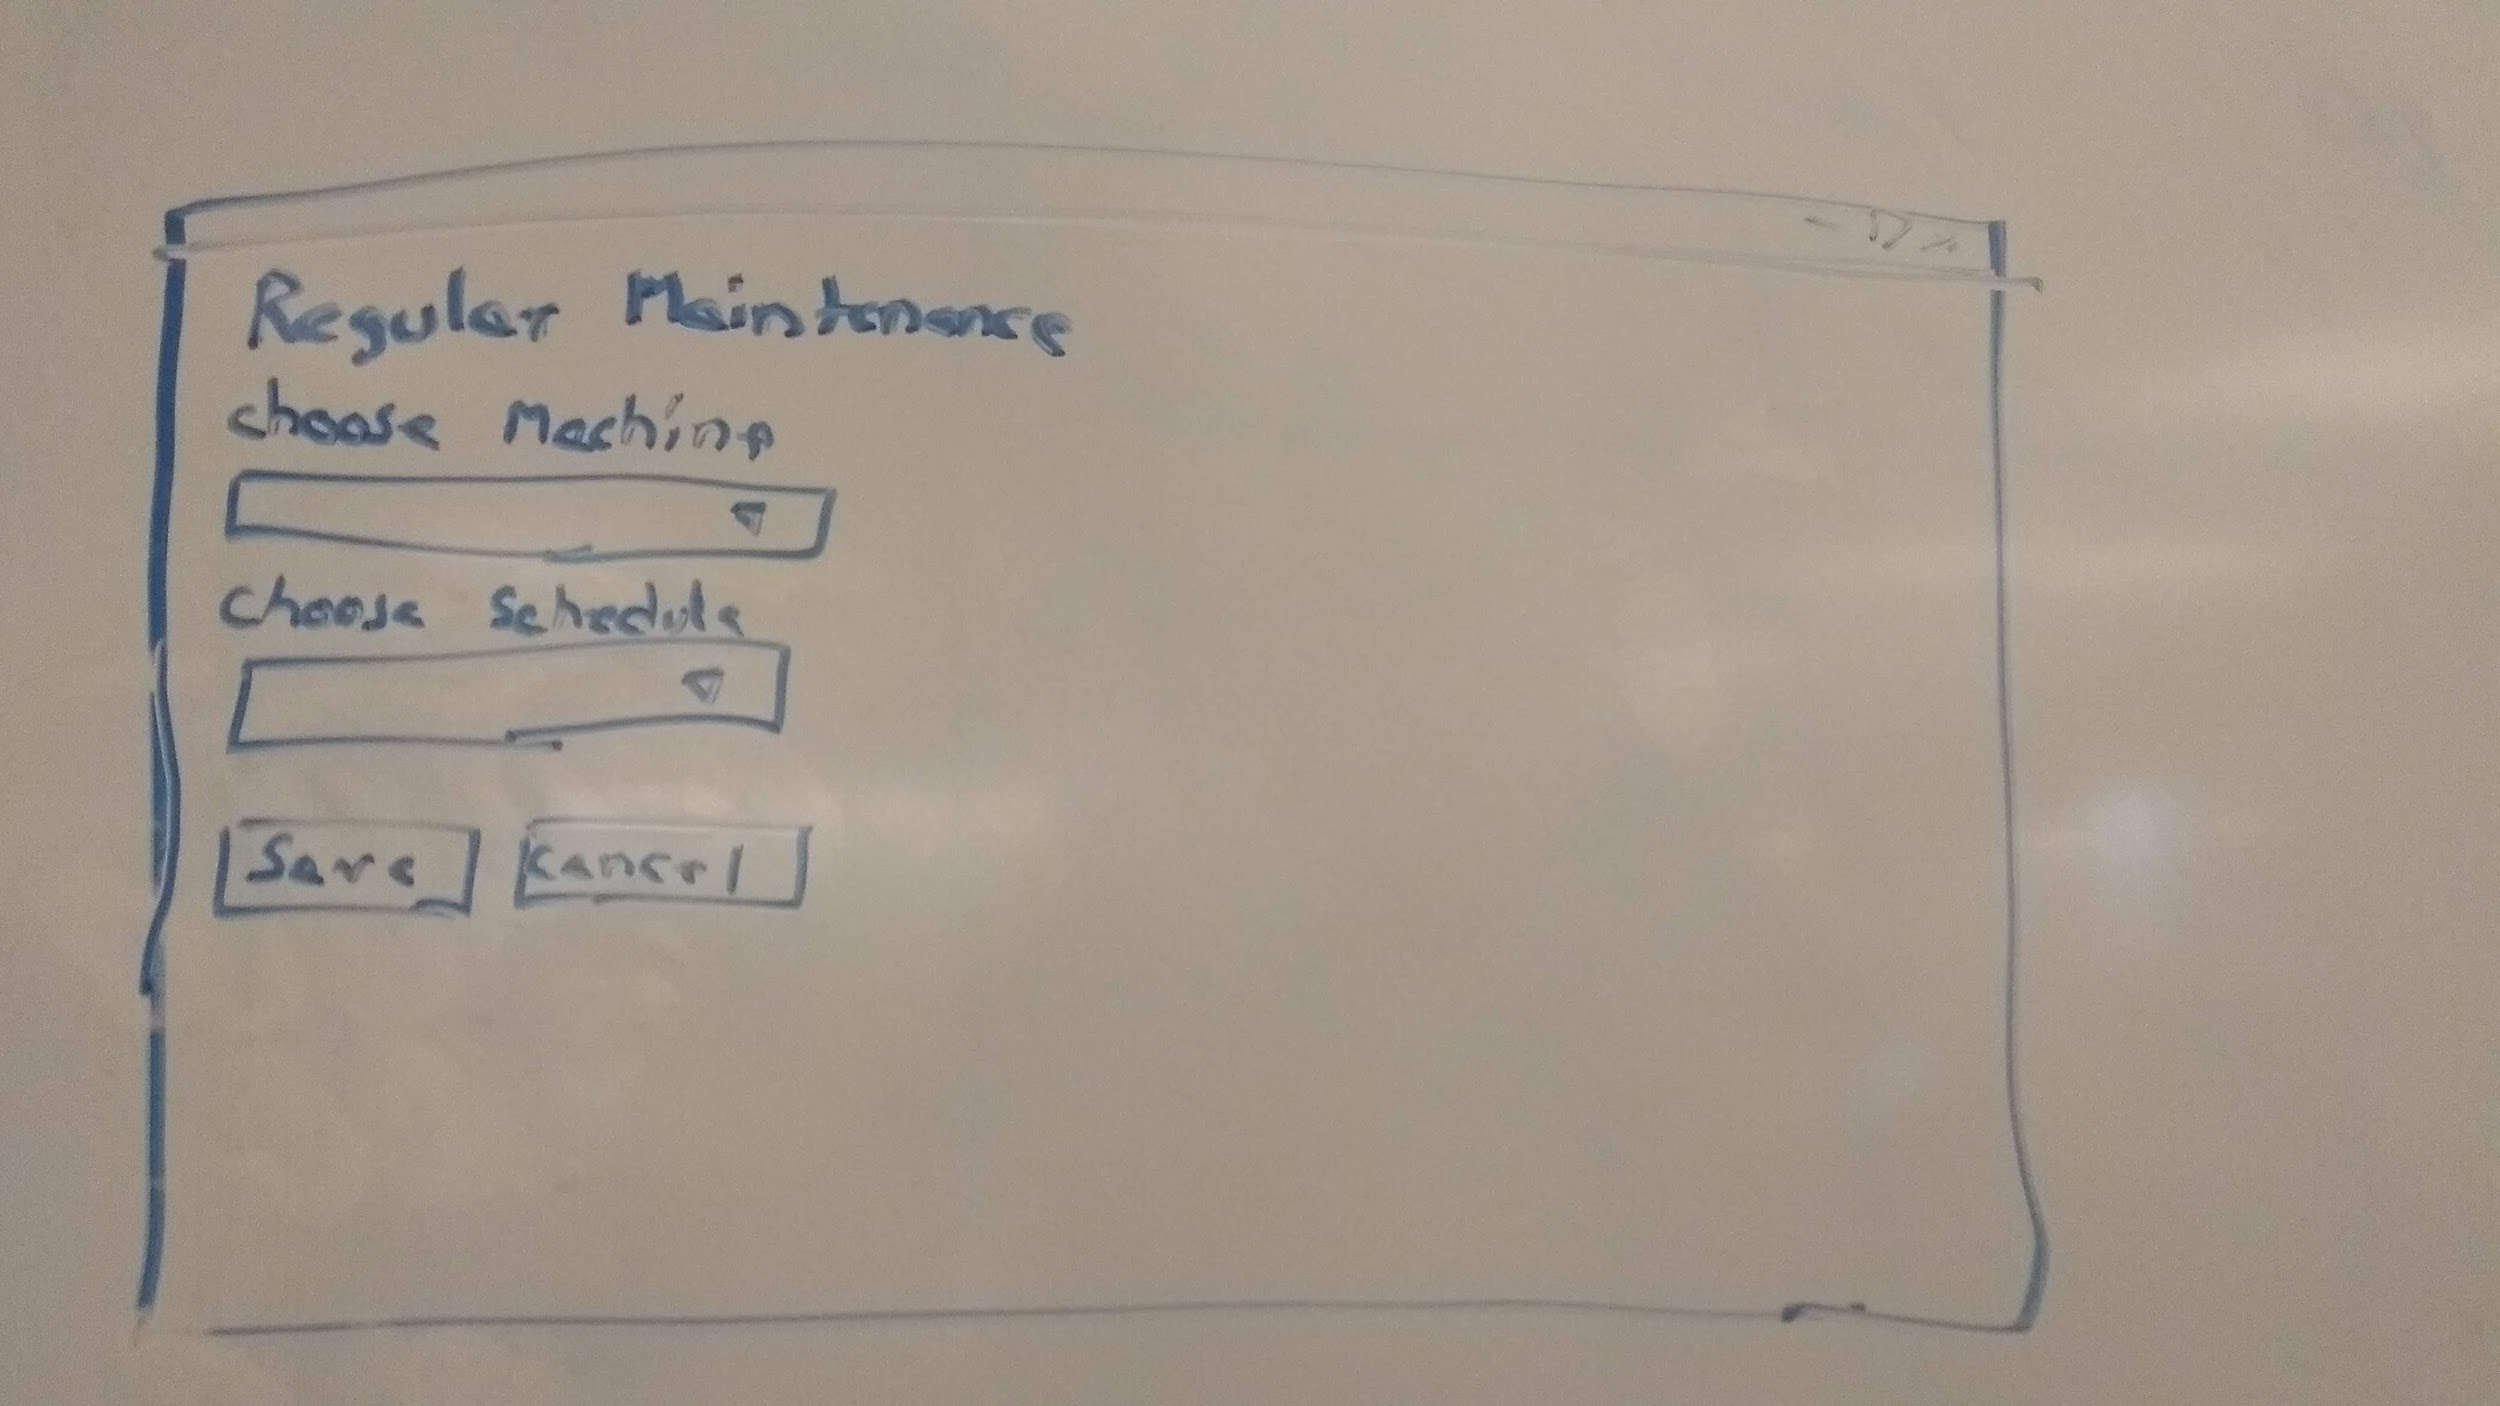 Regular Maintenance
choose Machine
choose schedule
Save Cancel